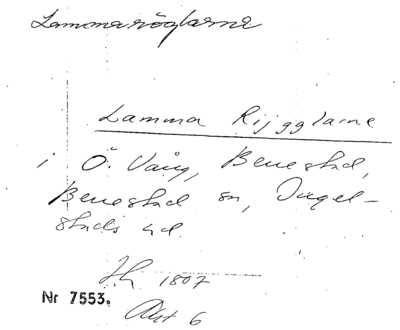 Lammaröglarne
Lamma Rijgglarne
i Ö. Vång, Benestad,
Benestad sn, Ingel-
stads hd.
Sh 1807
Nr 7553.
Akt 6